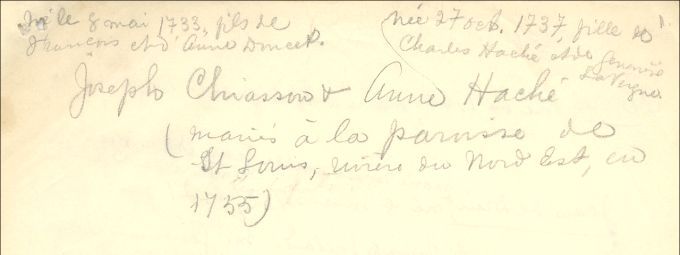 né le 8 mai 1733, fils de
François et d'Anne Doucet.
née 27 oct. 1737, fille de
Charles Haché et de Geneviève
LaVergne.
Joseph Chiasson & Anne Haché
(mariés à la paroisse de
St Louis, rivière du Nord Est, en
1755)